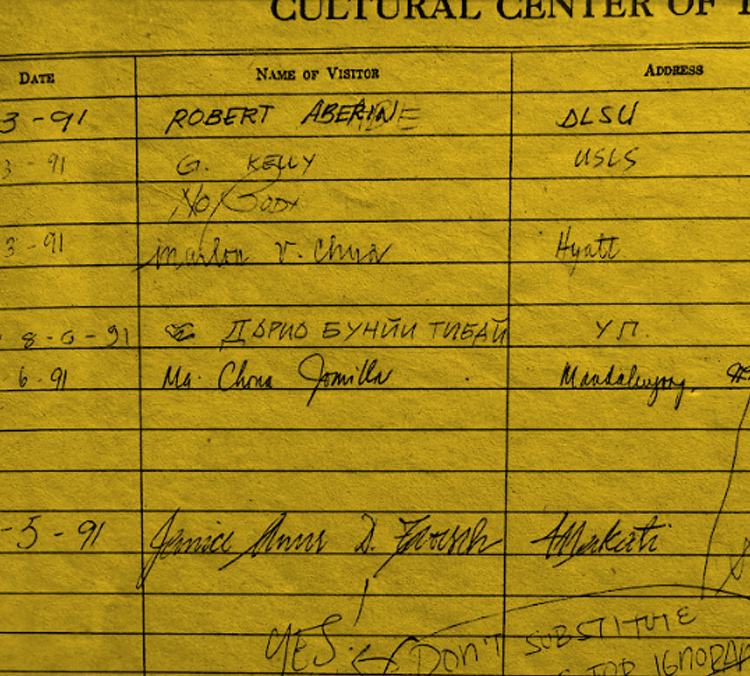 CULTURAL CENTER OF
DATE NAME OF VISITOR ADDRESS
3-91 ROBERT ABERIN DLSU
3-91 G. KELLY USLS
No Body
3-91 Marlon V. Chua Hyatt
8-6-91 ДАРИО БУНЙИ ТИБАЙ УП.
6-91 Ma. Chona Jomilla Mandaluyong,
-5-91 Janice Anne D. Makati
YES! DON'T SUBSTITUTE
FOR